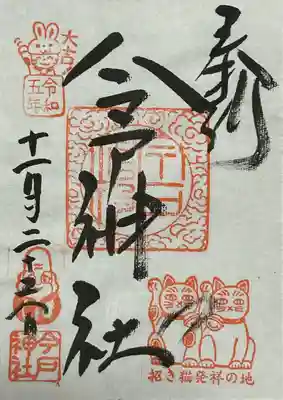 奉拝
今戸神社
大吉
令和
五年
十一月二十
招き猫発祥の地
今戸
神社